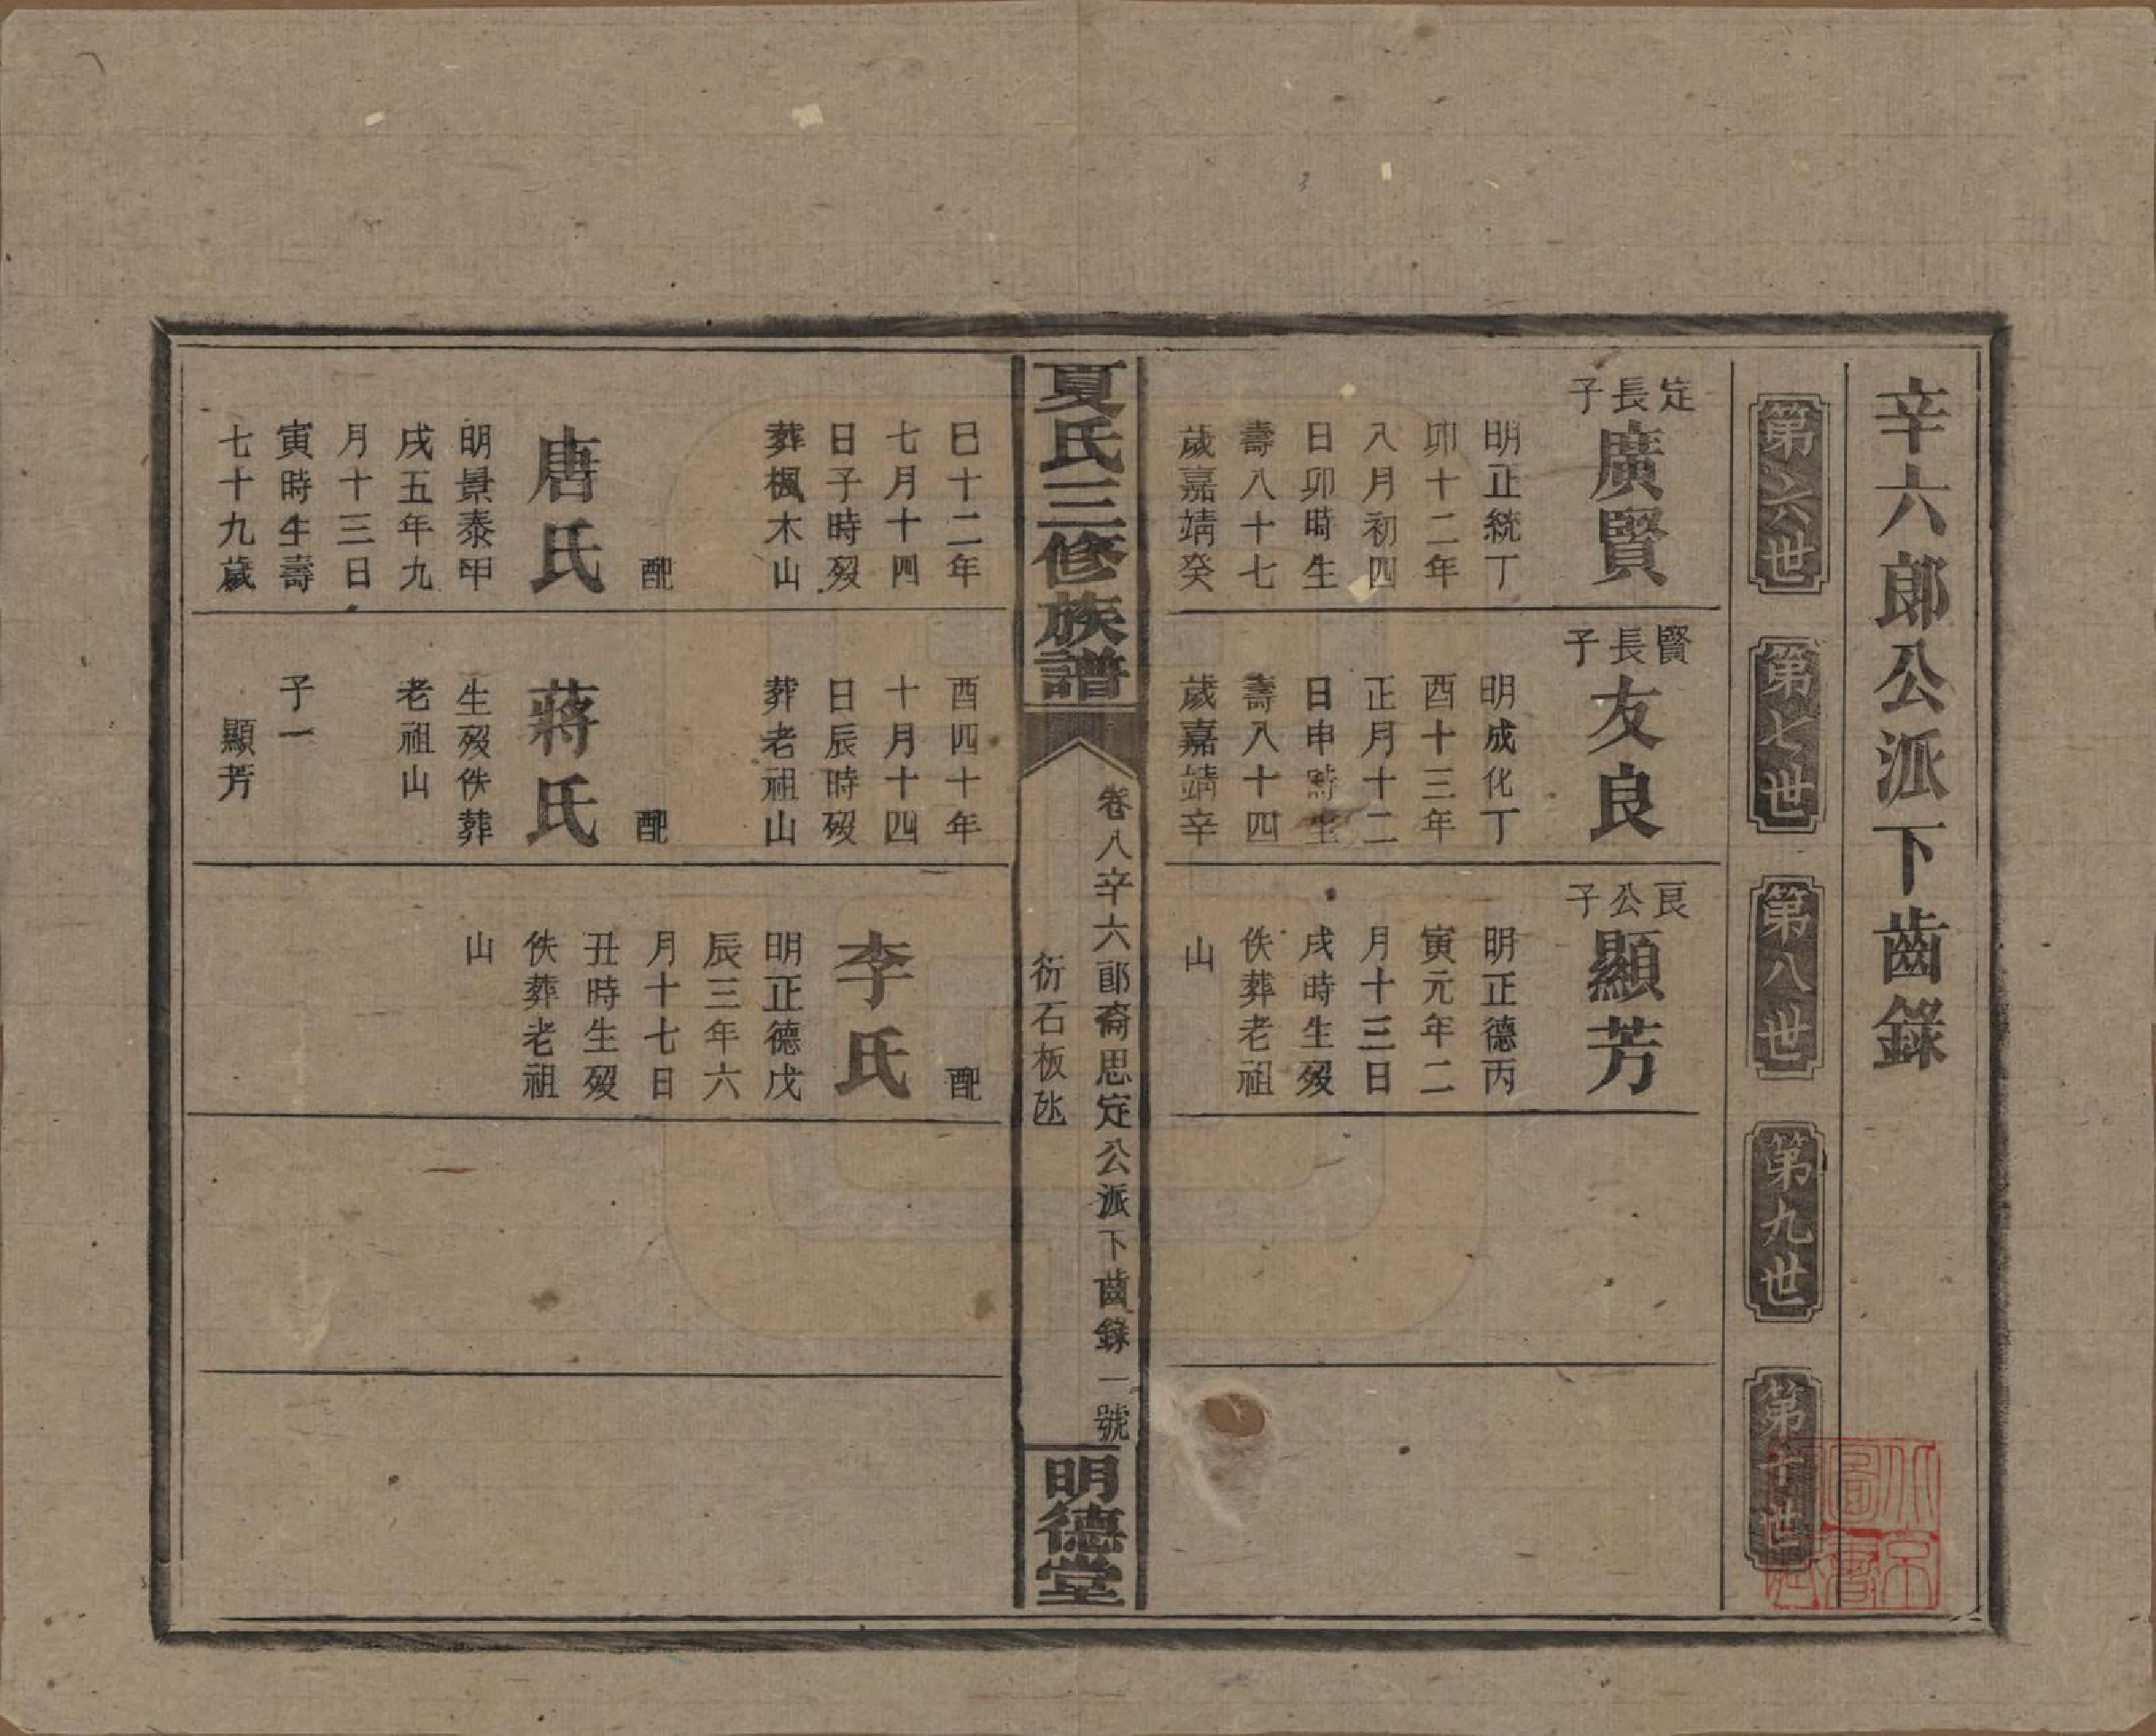 辛六郎公派下齒錄
第六世
第七世
第八世
第九世
第十世
定長子
廣賢
明正統丁
卯十二年
八月初四
日卯時生
壽八十七
歲嘉靖癸
巳十二年
七月十四
日子時歿
葬楓木山
配
唐氏
明景泰甲
戌五年九
月十三日
寅時生壽
七十九歲
賢長子
友良
明成化丁
酉十三年
正月十二
日申時生
壽八十四
歲嘉靖辛
酉四十年
十月十四
日辰時歿
葬老祖山
配
蔣氏
生歿佚葬
老祖山
子一
顯芳
良公子
顯芳
明正德丙
寅元年二
月十三日
戌時生歿
佚葬老祖
山
配
李氏
明正德戊
辰三年六
月十七日
丑時生歿
佚葬老祖
山
夏氏三修族譜
卷八辛六郎裔思定公派下齒錄 一號
衍石板氹
明德堂
北京
圖書